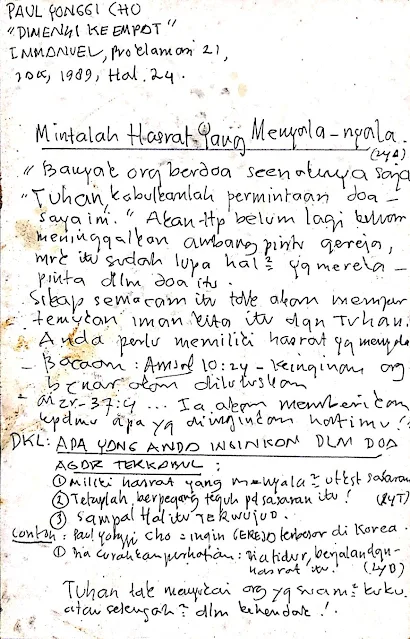 PAUL YONGGI CHO
"DIMENSI KEEMPAT"
IMMANUEL, Proklamasi 21,
1989, Hal. 24.
Mintalah Hasrat Yang Menyala-nyala.
"Banyak org berdoa seenaknya saja
"Tuhan, kabulkanlah permintaan doa-
saya ini." Akan ttp belum lagi
meninggalkan ambang pintu gereja,
mrk itu sudah lupa hal² yg mereka-
pinta dlm doa itu.
Sikap semacam itu tdk akan memper
temukan iman kita itu dgn Tuhan.
Anda perlu memiliki hasrat yg
- Bacaan: Amsal 10:24 - keinginan org
benar akan diluluskan
- Mzr-37:4 ... Ia akan memberikan
kpdmu apa yg diinginkan hatimu!
DKL: APA YANG ANDA INGINKAN DLM DOA
AGAR TERKABUL:
① Miliki hasrat yang menyala² sasaran
② Tetaplah berpegang teguh pd sasaran itu!
③ Sampai Hal itu TERWUJUD.
Contoh: Paul Yonggi Cho = ingin GEREJA terbesar di Korea.
① Dia curahkan perhatian: Dia tidur, berjalan dgn-
hasrat itu.
Tuhan tdk menyukai org yg suam² kuku
atau setengah² dlm kehendak!